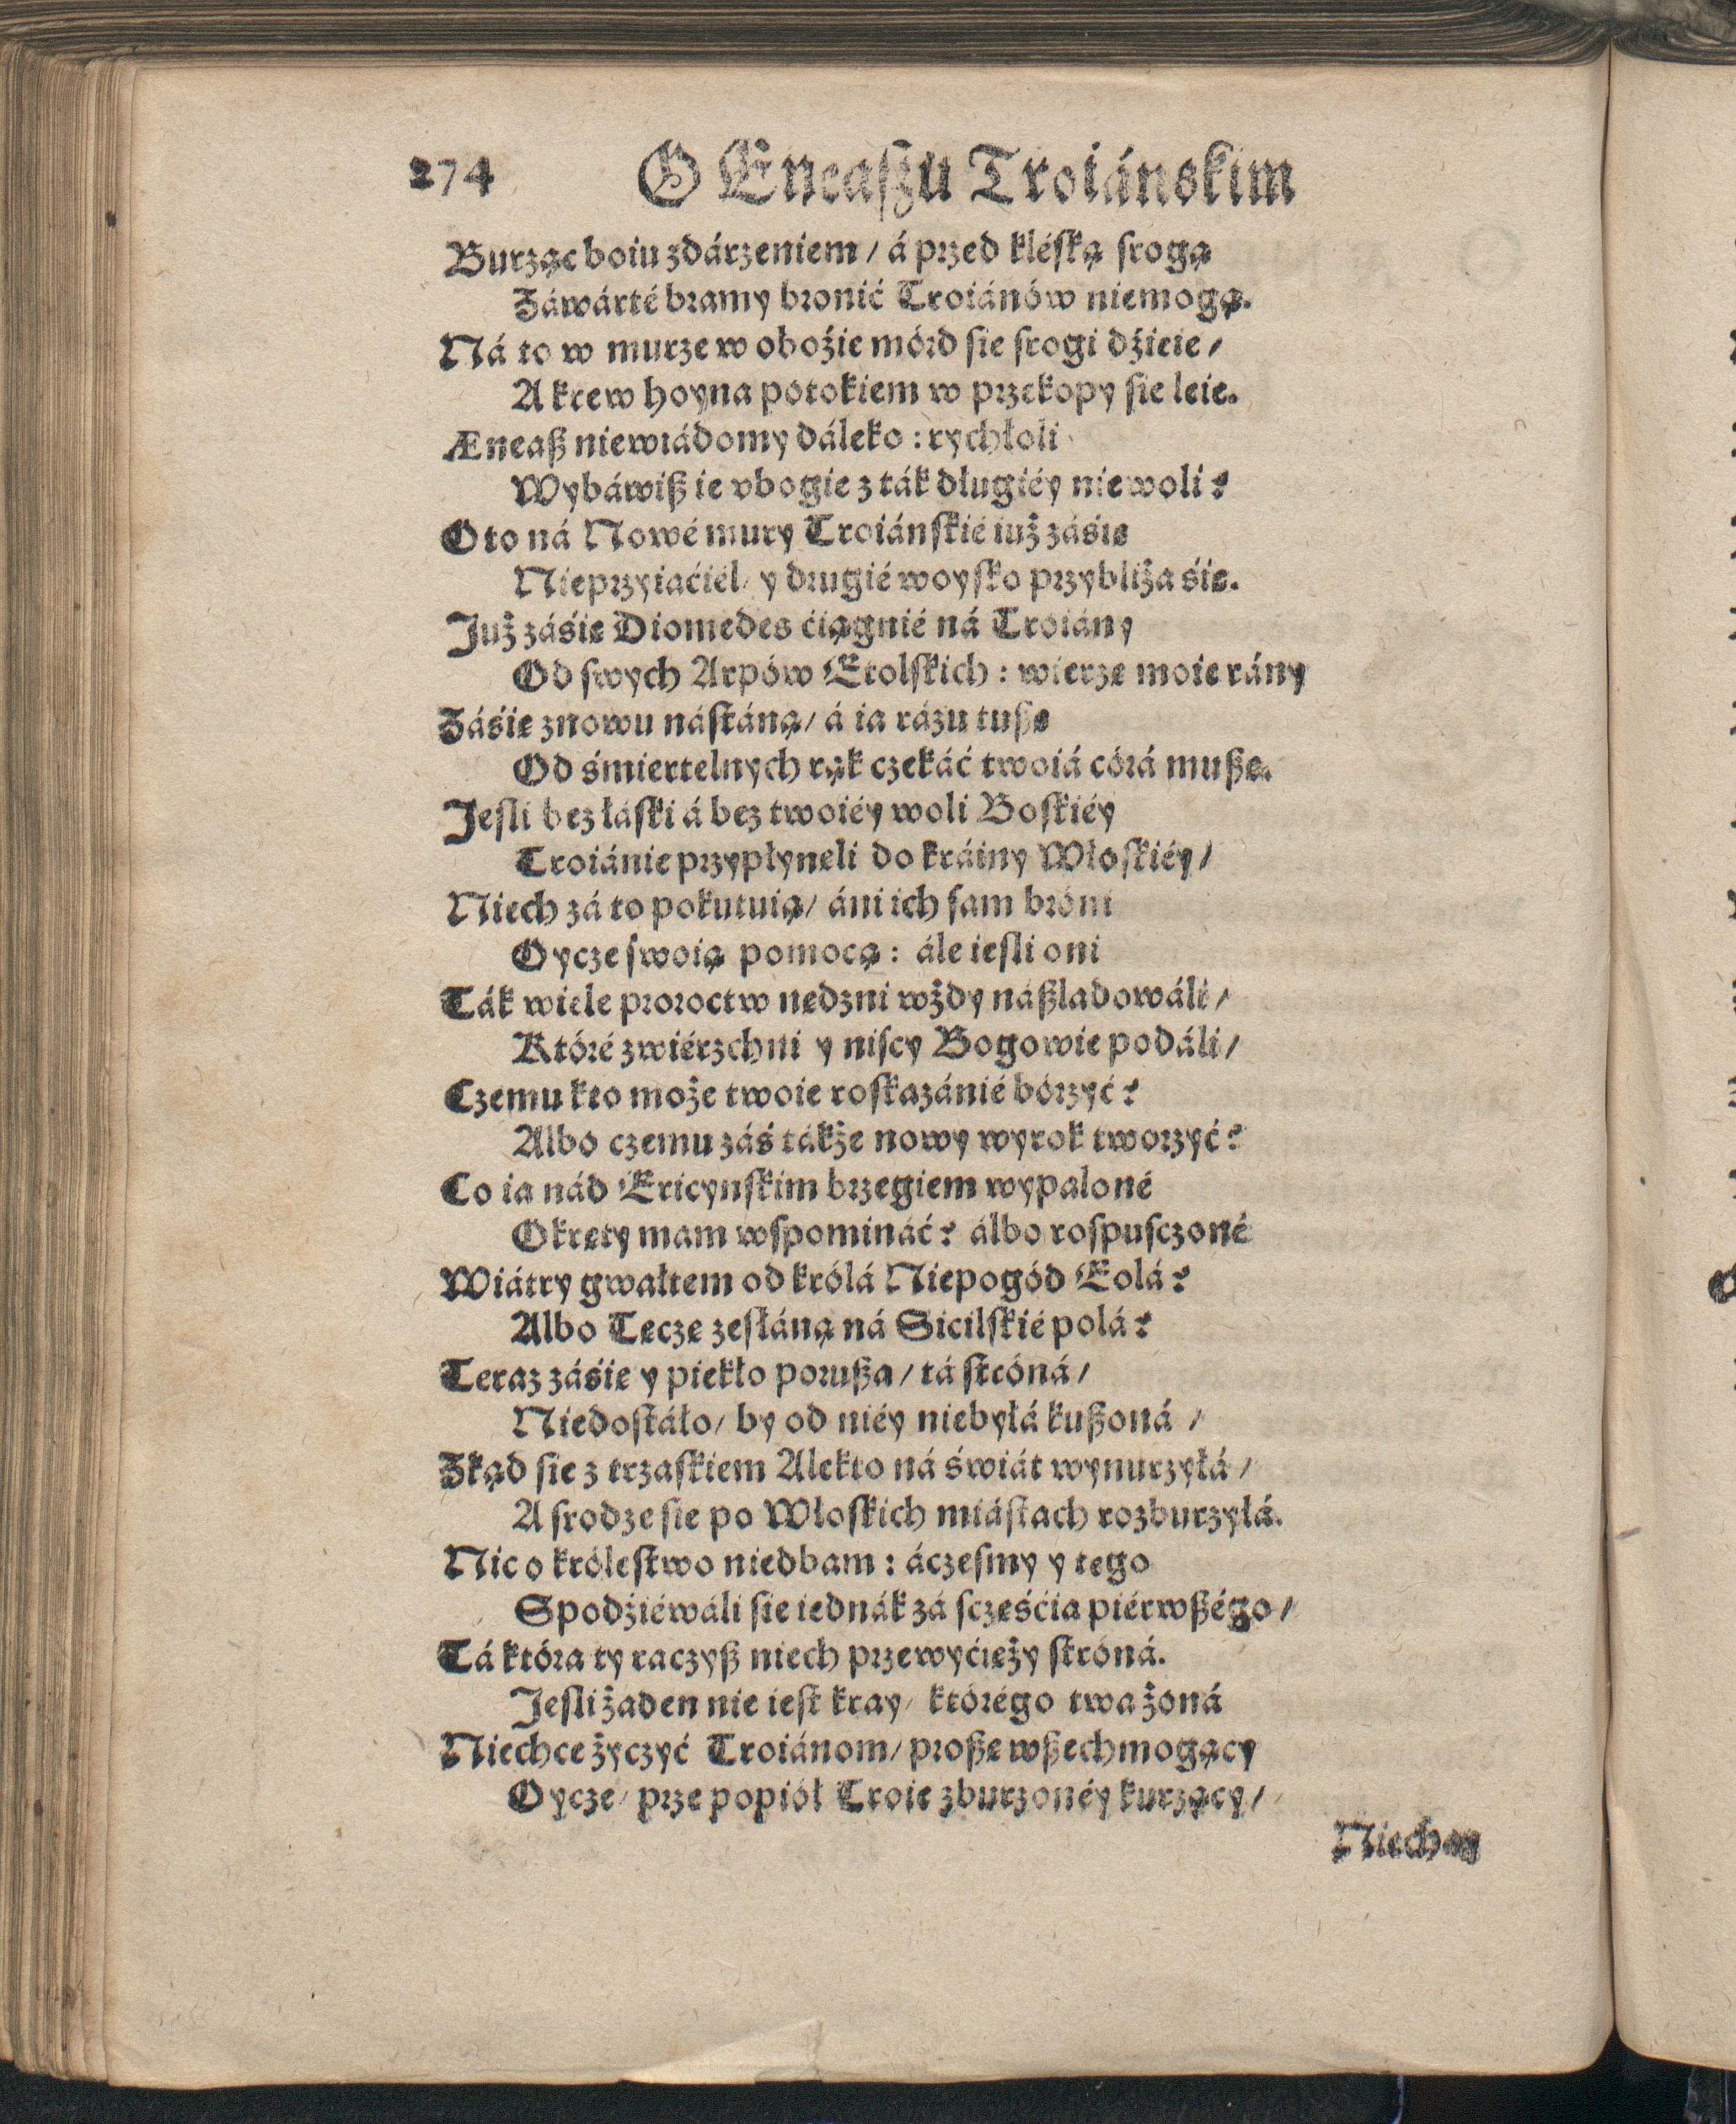 274 O Eneaſzu Troiánskim
Burząc boiu zdárzeniem / á przed klęſką ſrogą
Záwárté bramy bronić Troiánów niemogą.
Ná to w murze w oboźie mórd ſie ſrogi dźieie /
A krew hoyna potokiem w przekopy ſie leie.
Æneaß niewiádomy dáleko : rychłoli
Wybáwiß ie vbogie z ták długiéy niewoli?
Oto ná Nowé mury Troiánſkié iuż záśię
Nieprzyiaćiél / y drugié woyſko przybliża śię.
Już záśię Diomedes ćiągnié ná Troiány
Od ſwych Arpów Etolſkich : wierzę moie rány
Záśię znowu náſtáną / á ia rázu tußę
Od śmiertelnych rąk czekáć twoiá córá mußę.
Jeſli bez łáſki á bez twoiéy woli Boſkiéy
Troiánie przypłynęli do kráiny Włoſkiéy /
Niech zá to pokutuią / áni ich ſam bróni
Oycze ſwoią pomocą : ále ieſli oni
Ták wiele proroctw nędzni wżdy náßladowáli /
Któré zwiérzchni y niſcy Bogowie podáli /
Czemu kto może twoie roſkazánié bórzyć?
Albo czemu záś tákże nowy wyrok tworzyć?
Co ia nád Ericynſkim brzegiem wypaloné
Okręty mam wſpomináć? álbo roſpuſczoné
Wiátry gwałtem od królá Niepogód Eolá?
Albo Tęczę zeſłáną ná Sicilſkié polá?
Teraz záśię y piekło porußa / tá ſtróná /
Niedoſtáło / by od niéy niebyłá kußoná /
Zkąd ſie z trzaſkiem Alekto ná świát wynurzyłá /
A ſrodze ſie po Włoſkich miáſtach rozburzyłá.
Nic o króleſtwo niedbam : áczeſmy y tego
Spodźiéwáli ſie iednák zá ſczęśćia piérwßégo /
Tá która ty raczyß niech przewyćięży ſtróná.
Jeſli żaden nie ieſt kray / którégo twa żoná
Niechce życzyć Troiánom / proßę wßechmogący
Oycze / prze popiół Troie zburzonéy kurzący /
Niechay